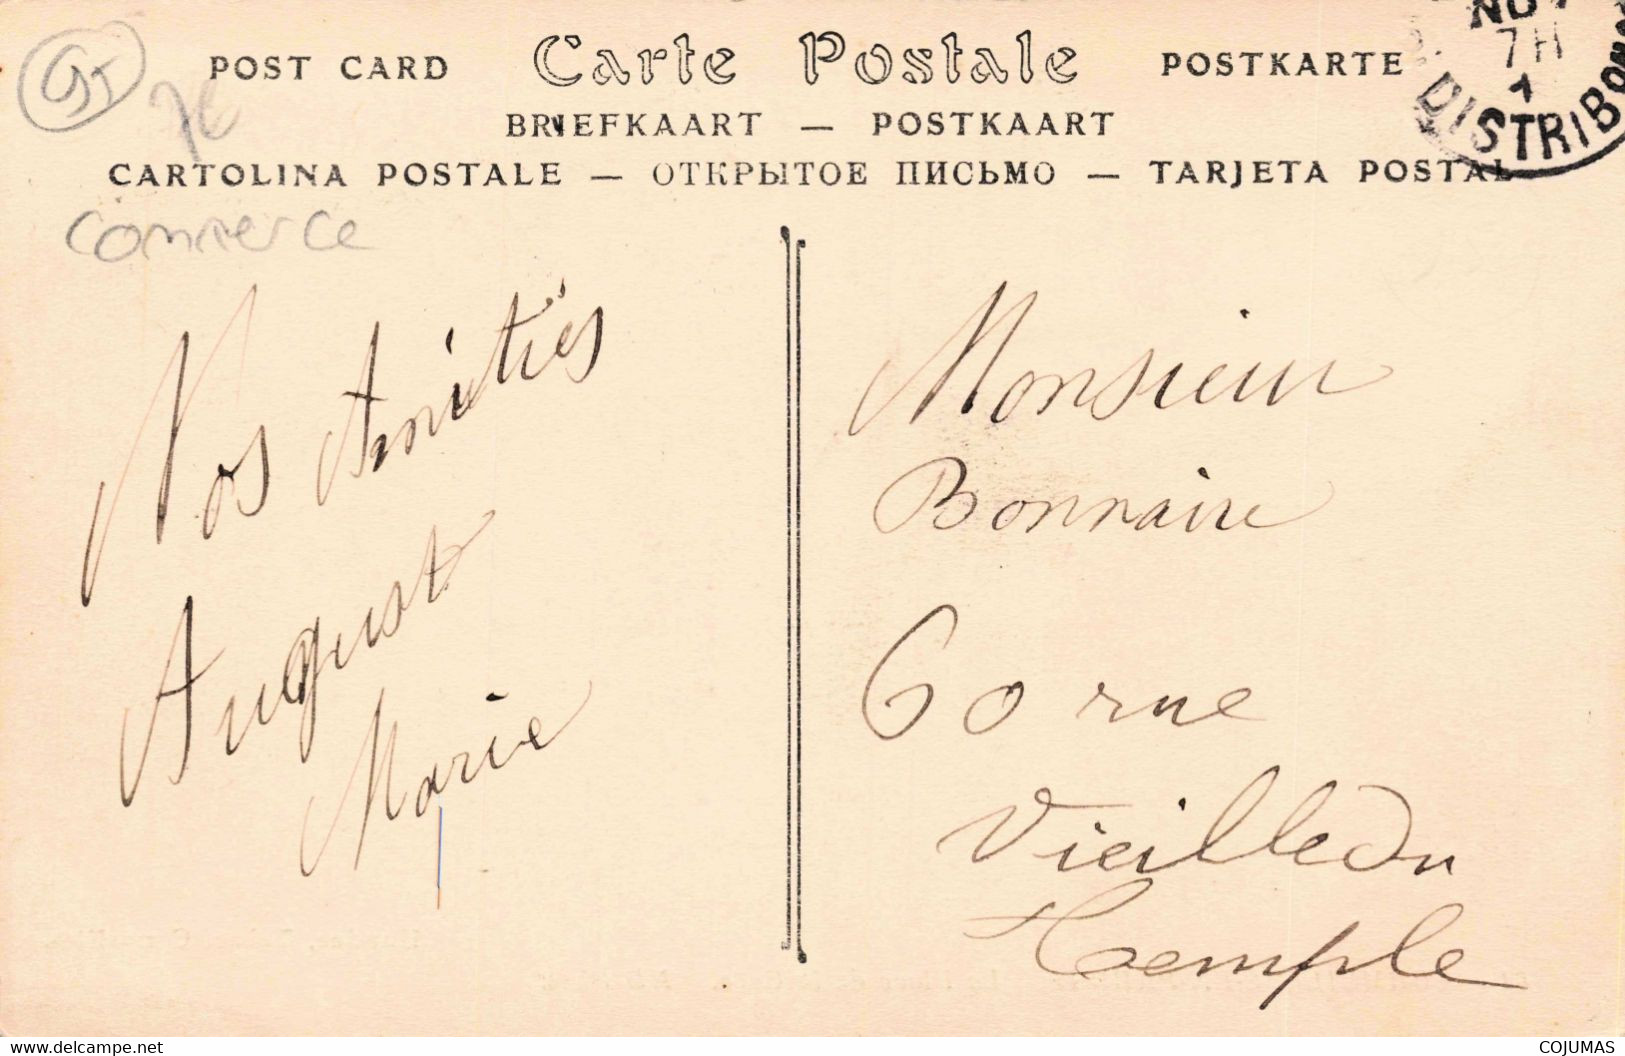 POST CARD Carte Postale POSTKARTE
BRIEFKAART — POSTKAART
CARTOLINA POSTALE — ОТКРЫТОЕ ПИСЬМО — TARJETA POSTAL
7H
DISTRIBON
7€
Commerce
Nos Amitiés
Auguste
Marie
Monsieur
Bonnaire
60 rue
Vieille du
Temple
www.delcampe.net
COJUMAS